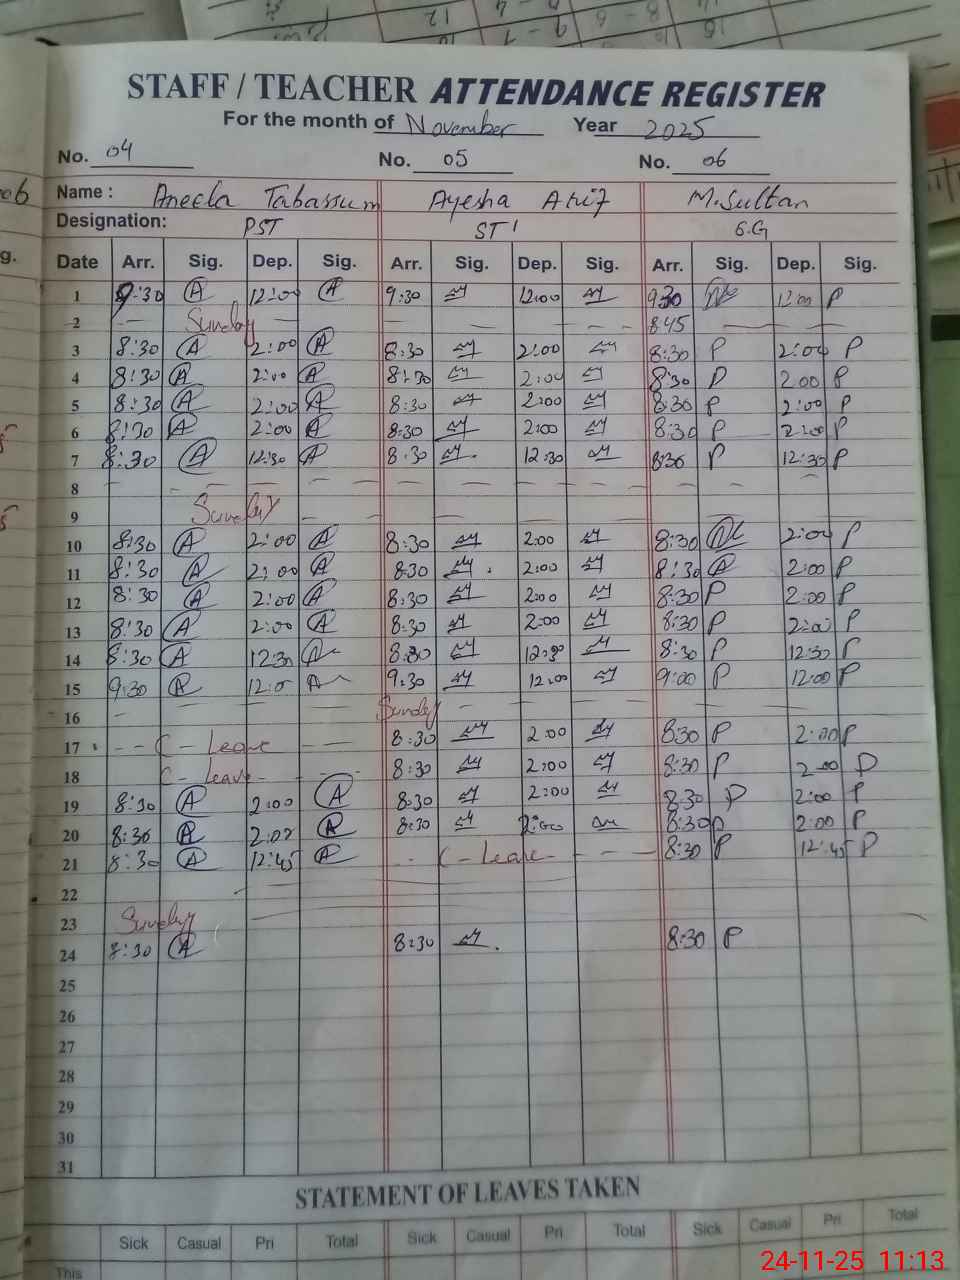 STAFF / TEACHER ATTENDANCE REGISTER
For the month of November Year 2025
No. 04 No. 05 No. 06
Name : Aneela Tabassum Ayesha M.Sultan
Designation: PST ST
Date Arr. Sig. Dep. Sig. Arr. Sig. Dep. Sig. Arr. Sig. Dep. Sig.
1 9:30 A 12:00 A 9:30 12:00 9:30 12:00 P
2 Sunday 8:45
3 8:30 A 2:00 A 8:30 2:00 8:30 P 2:00 P
4 8:30 A 2:00 A 8:30 2:00 8:30 P 2:00 P
5 8:30 A 2:00 A 8:30 2:00 8:30 P 2:00 P
6 8:30 A 2:00 A 8:30 2:00 8:30 P 2:00 P
7 8:30 A 12:30 A 8:30 12:30 8:30 P 12:30 P
8
9 Sunday
10 8:30 A 2:00 A 8:30 2:00 8:30 2:00 P
11 8:30 A 2:00 A 8:30 2:00 8:30 2:00 P
12 8:30 A 2:00 A 8:30 2:00 8:30 P 2:00 P
13 8:30 A 2:00 A 8:30 2:00 8:30 P 2:00 P
14 8:30 A 12:30 8:30 12:30 8:30 P 12:30 P
15 9:30 A 9:30 12:00 9:00 P 12:00 P
16 Sunday
17 C - Leave 8:30 2:00 8:30 P 2:00 P
18 C - Leave 8:30 2:00 8:30 P 2:00 P
19 8:30 A 2:00 A 8:30 2:00 8:30 P 2:00 P
20 8:30 A A 8:30 2:00 8:30 P 2:00 P
21 8:30 A 12:45 A C - Leave 8:30 P 12:45 P
22
23 Sunday
24 8:30 A 8:30 8:30 P
25
26
27
28
29
30
31
STATEMENT OF LEAVES TAKEN
Sick Casual Pri Total Sick Casual Pri Total Sick Casual Pri Total
This
24-11-25 11:13